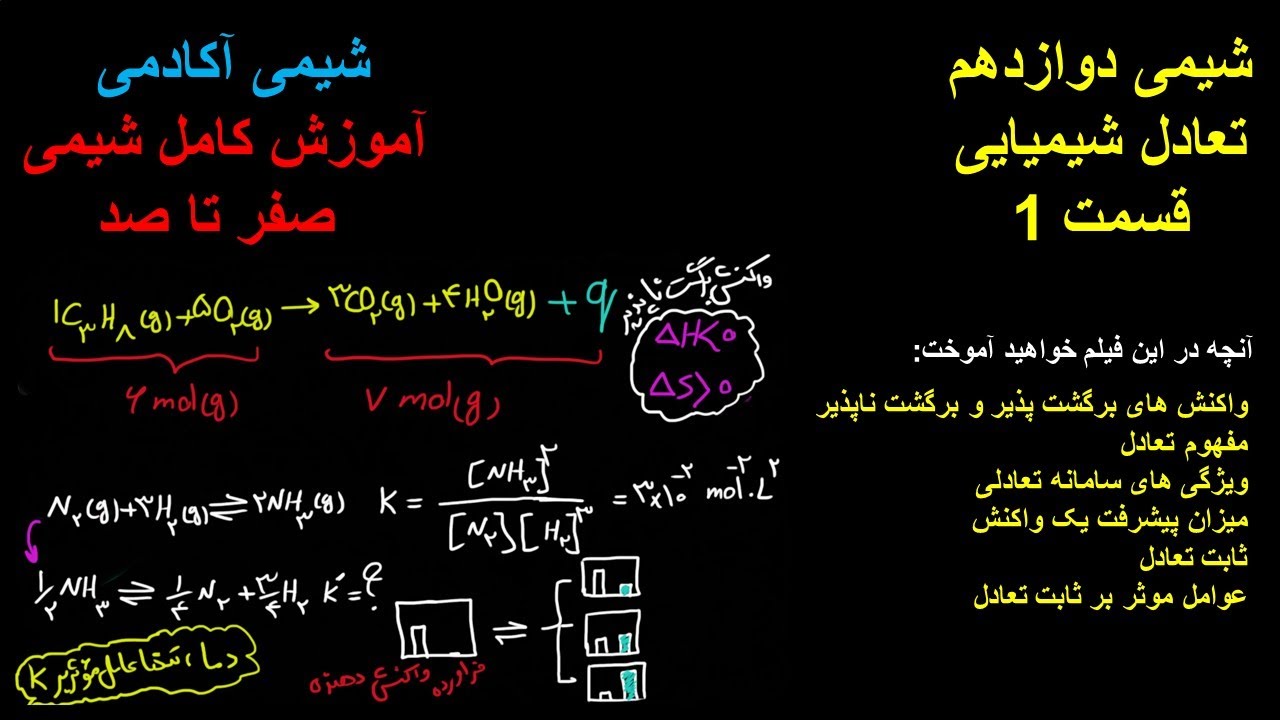 شیمی دوازدهم
تعادل شیمیایی
قسمت 1
شیمی آکادمی
آموزش کامل شیمی
صفر تا صد
آنچه در این فیلم خواهید آموخت:
واکنش های برگشت پذیر و برگشت ناپذیر
مفهوم تعادل
ویژگی های سامانه تعادلی
میزان پیشرفت یک واکنش
ثابت تعادل
عوامل موثر بر ثابت تعادل
۱C₃H₈(g)+۵O₂(g) → ۳CO₂(g)+۴H₂O(g) + q
۶ mol(g)
۷ mol(g)
واکنش برگشت ناپذیر
ΔH<۰
ΔS>۰
N₂(g)+۳H₂(g) ⇌ ۲NH₃(g)
K = [NH₃]^۲ / [N₂][H₂]^۳ = ۳×۱۰^-۲ mol^-۲.L^۲
۱/۲ NH₃ ⇌ ۱/۴ N₂ + ۳/۴ H₂ K' = ?
دما، تنها عامل مؤثر بر K
فراورده واکنش دهنده